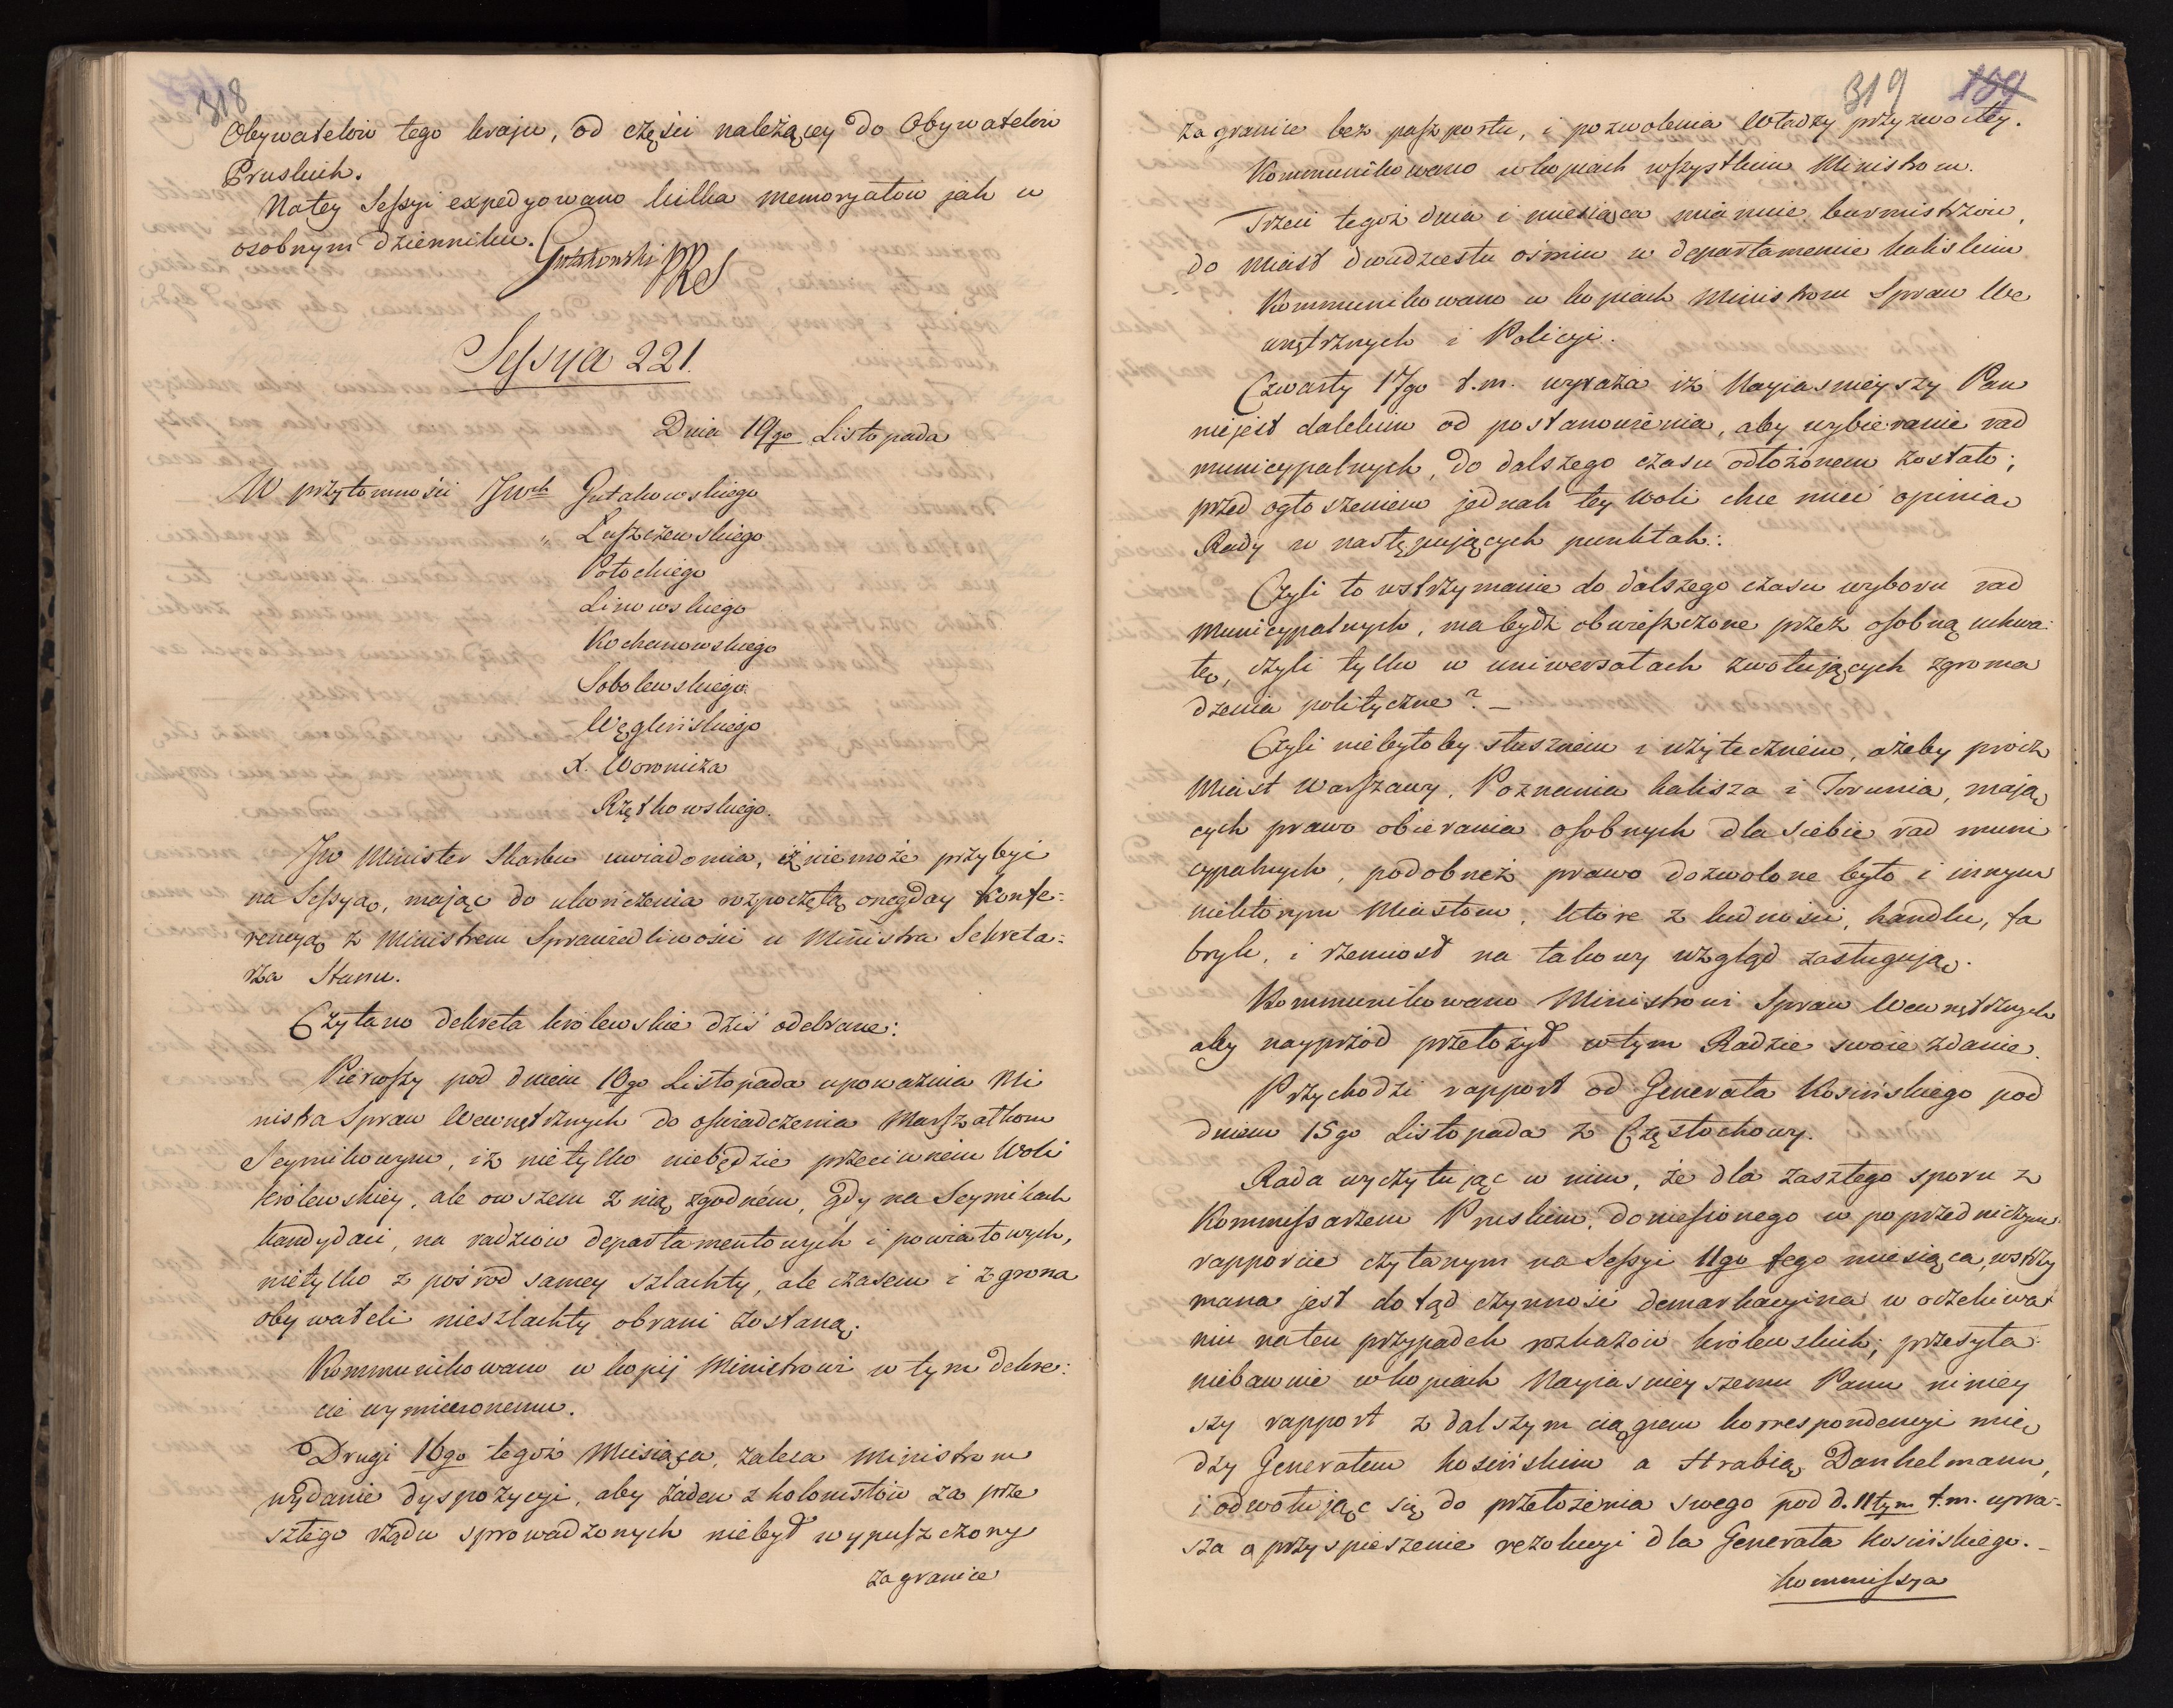 318
Obywatelów tego kraju, od części należącey do Obywatelów
Pruskich.
Natey Seſsyi expedyowano kilka memoryałów jak w
osobnym dzienniku. Gutakowski PRS
Seſsya 221.
Dnia 19go Listopada
W przytomności JWch Gutakowskiego
„ Łuſzczewskiego
Potockiego
Linowskiego
Kochanowskiego
Sobolewskiego
Węglińskiego
X. Woronicza
Rzętkowskiego.
JW Minister Skarbu uwiadomia, iż niemoże przybyć
na Seſsyą, mając do ukończenia rozpoczętą onegday Konfe-
rencyą z Ministrem Sprawiedliwości u Ministra Sekreta-
rza Stanu.
Czytano dekreta królewskie dziś odebrane:
Pierwſzy pod dniem 10go Listopada upoważnia Mi
nistra Spraw Wewnętrznych do oświadczenia Marſzałkom
Seymikowym, iż nietylko niebędzie przeciwném Woli
królewskiey, ale owszem z nią zgodném, gdy na Seymikach
kandydaci, na radziów departamentowych i powiatowych,
nietylko z pośród samey szlachty, ale czasem i z grona
obywateli nieszlachty obrani zostaną.
Kommunikowano w kopij Ministrowi w tym dekre-
cie wymienionemu.
Drugi 16go tegoż Miesiąca, zaleca Ministrom
wydanie dyspozycyi, aby żaden z kolonistów za prze
szłego rządu sprowadzonych niebył wypuſzczony
zagranicę
319 159
zagranicę bez paſzportu, i pozwolenia Władzy przyzwoitey.
Kommunikowano w kopiach wſzystkim Ministrom.
Trzeci tegoż dnia i miesiąca mianuie burmistrzów,
do Miast dwudziestu ośmiu w departamencie kaliskim
Kommunikowano w kopiach Ministrom Spraw We
wnętrznych i Policyi.
Czwarty 17go t.m. wyraża iż Nayiasnieyszy Pan
niejest dalekim od postanowienia, aby wybieranie rad
municypalnych, do dalszego czasu odłożonem zostało;
przed ogłoszeniem jednak tey Woli chce mieć opinią
Rady w następujących punktah:
Czyli to wstrzymanie do dalszego czasu wyboru rad
Municypalnych, ma bydź obwieſzczone przez oſobną uchwa-
łę, czyli tylko w uniwersałach zwołujących zgroma
dzenia polityczne? –
Czyli niebyłoby słuszném i użyteczném, ażeby prócz
Miast Warſzawy, Poznania kalisza i Torunia, mają
cych prawo obierania oſobnych dla siebie rad muni
cypalnych, podobneż prawo dozwolone było i innym
niektorym Miastom, które z ludności, handlu, fa
bryk, i rzemiosł na takowy wzgląd zasługują.
Kommunikowano Ministrowi Spraw Wewnętrznych
aby nayprzód przełożył w tym Radzie swoie zdanie.
Przychodzi rapport od Generała Kosińskiego pod
dniem 15go Listopada z Częstochowy.
Rada wyczytując w nim, że dla zaszłego sporu z
Kommiſsarzem Pruskim, donieſionego w poprzedniczym
rapporcie czytanym na Seſsyi 11go tego miesiąca, wstrzy
mana jest dotąd czynność demarkacyina w oczekiwa
niu na ten przypadek rozkazów królewskich; przesyła
niebawnie w kopiach Nayiasnieyszemu Panu niniey
szy rapport z dalszym ciągiem korrespondencyi mię
dzy Generałem kosińskim a Hrabią Dankelmann,
i odwołując się do przełożenia swego pod d. 11tym t.m. upra-
sza o przyspieszenie rezolucyi dla Generała Kosińskiego. –
Kommiſsya